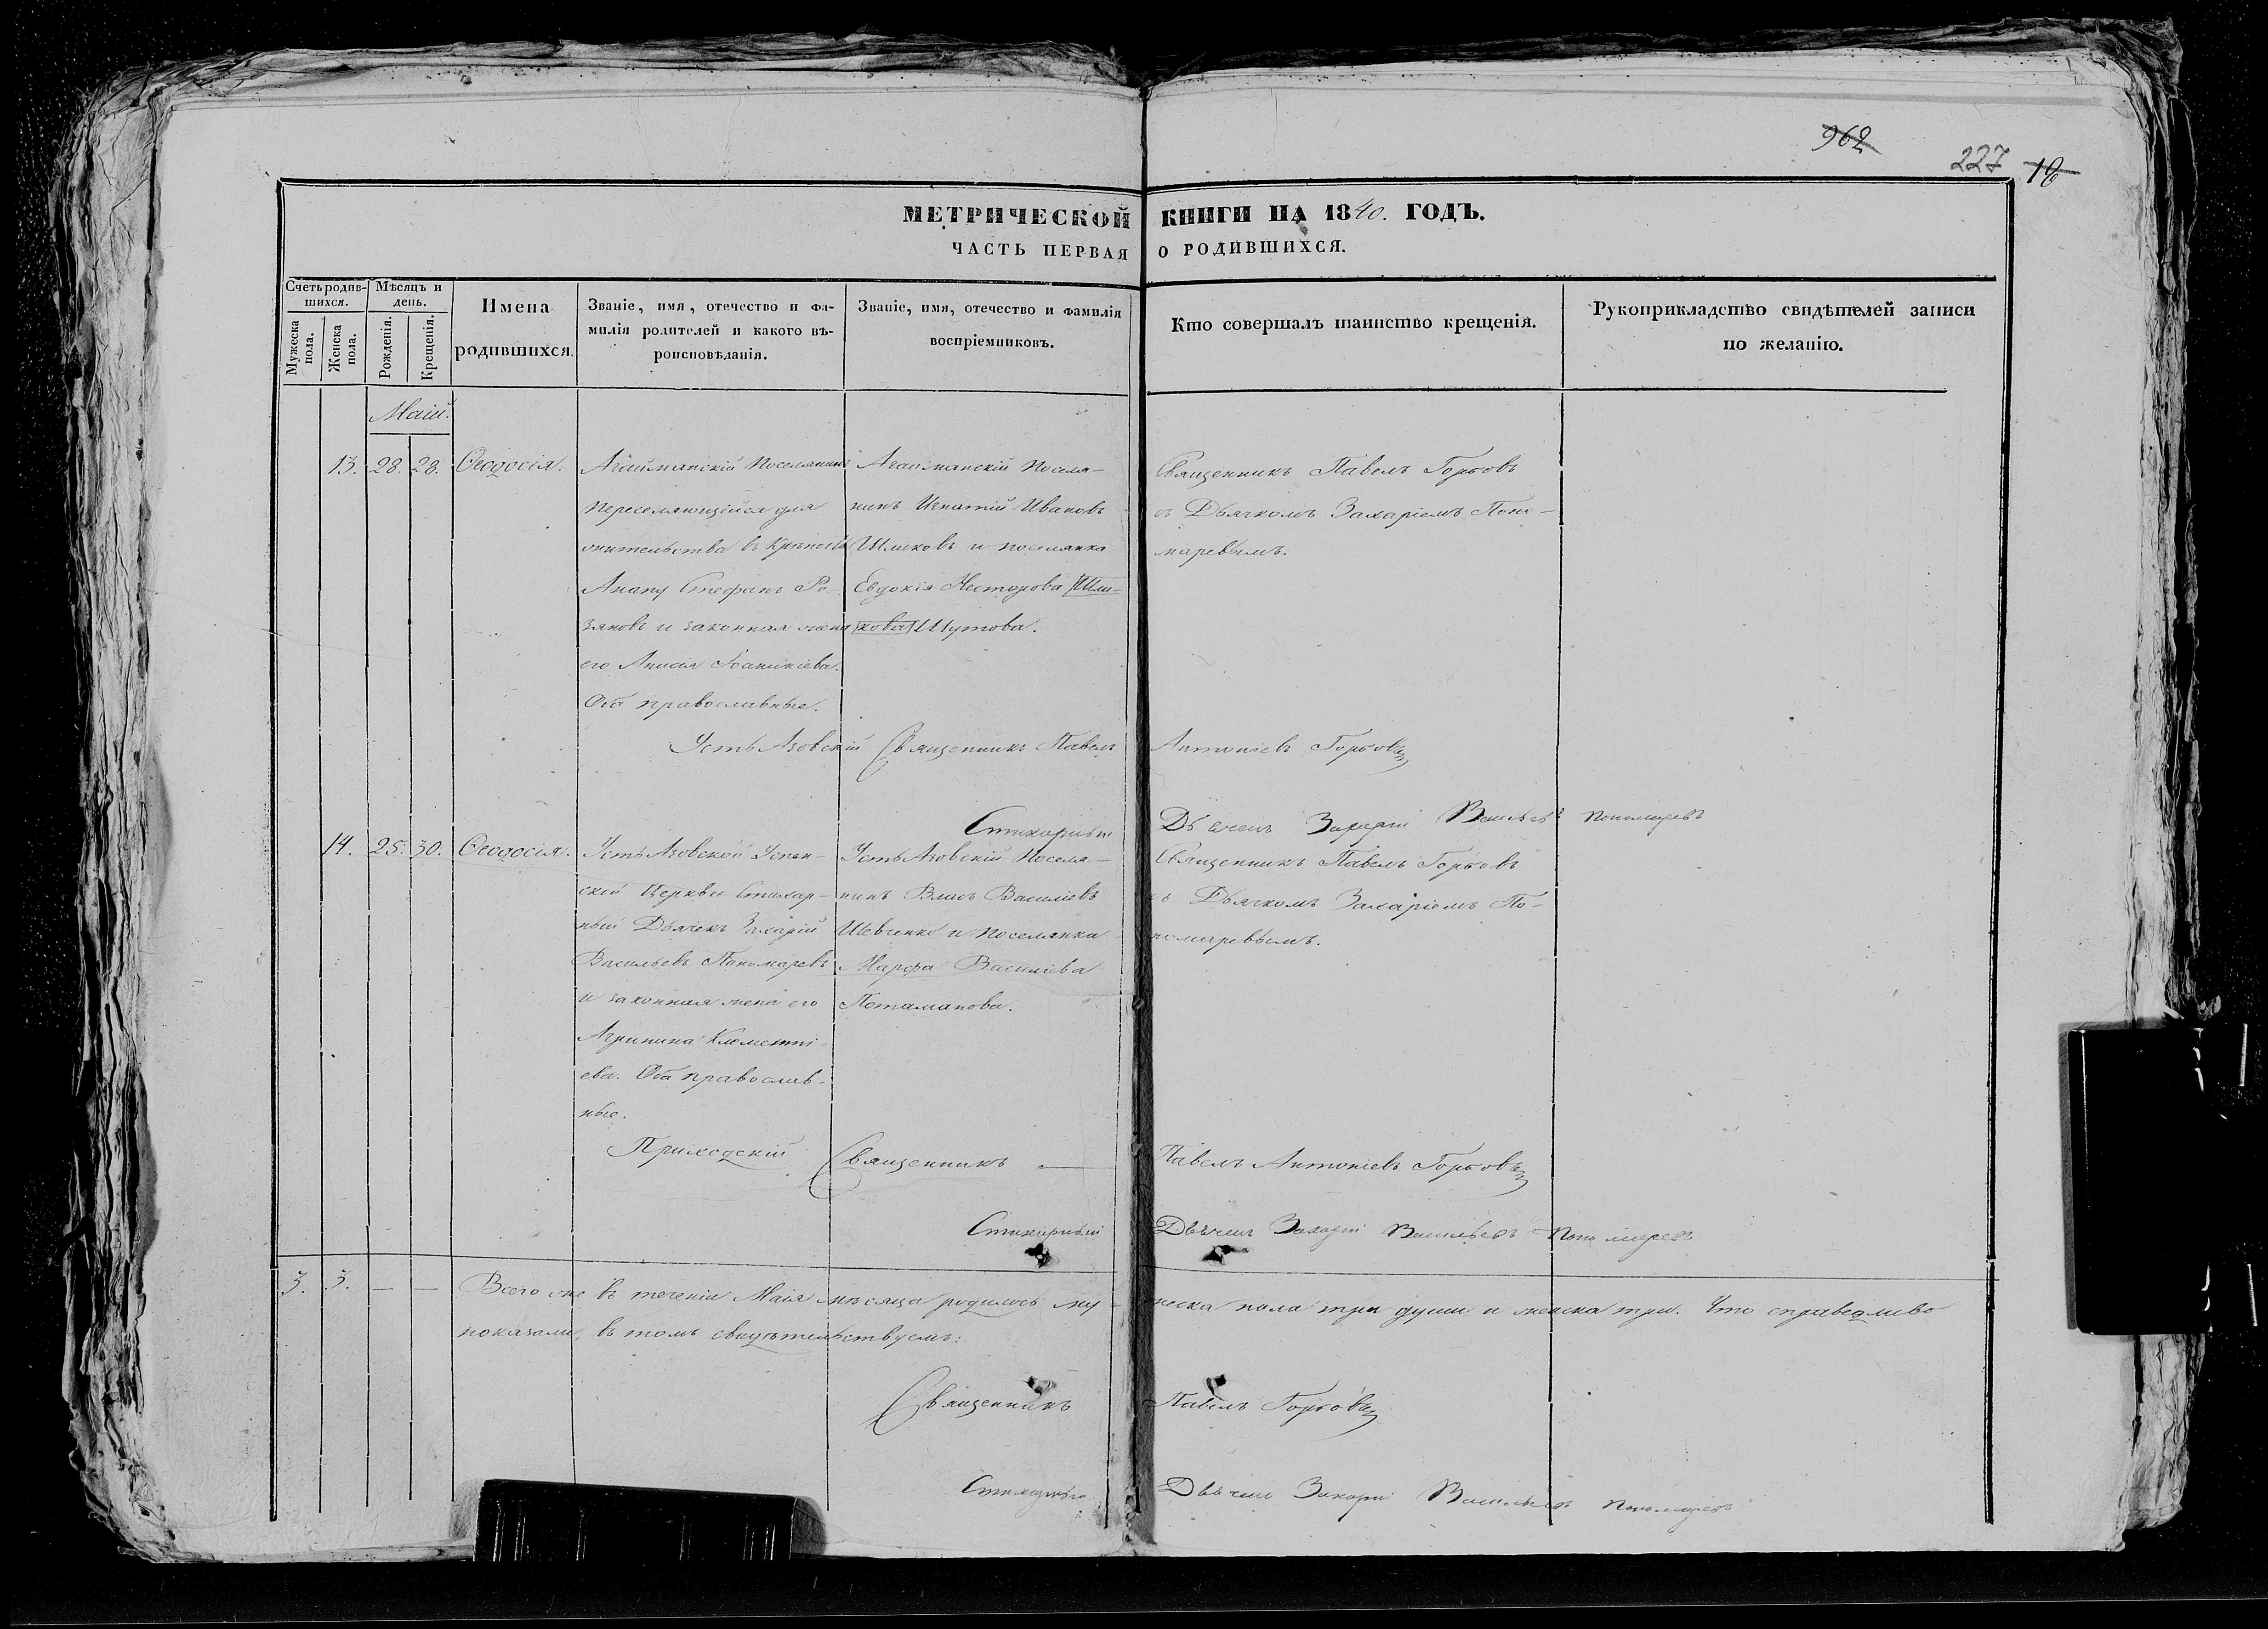 962
227 18
МЕТРИЧЕСКОЙ КНИГИ НА 1840. ГОДЪ.
ЧАСТЬ ПЕРВАЯ О РОДИВШИХСЯ.
Счетъ родившихся.
Мужеска пола.
Женска пола.
Мѣсяцъ и день.
Рожденія.
Крещенія.
Имена родившихся.
Званіе, имя, отечество и фа-
милія родителей и какого вѣ-
роисповѣданія.
Званіе, имя, отечество и фамилія
воспріемниковъ.
Кто совершалъ таинство крещенія.
Рукоприкладство свидѣтелей записи
по желанію.
Маій.
13. 28. 28. Ѳеодосія.
Агайманскій Поселянинъ
переселяющійся для
жительства въ Крѣпость
Анапу Стефанъ Ро-
зановъ и законная жена
его Анисія Іоаникіева.
Оба православные.
Агайманскій Поселя-
нинъ Игнатій Ивановъ
Шликовъ и поселянка
Евдокія Несторова Шли-
кова Шутова.
Священникъ Павелъ Горбовъ
съ Дьячкомъ Захаріемъ Поно-
маревымъ.
Усть Азовскій Священникъ Павелъ Антоніевъ Горбовъ
Стихарный Дьячекъ Захарій Васильевъ Пономаревъ
14. 25. 30. Ѳеодосія.
Усть Азовской Успен-
ской Церкви Стихар-
ный Дьячекъ Захарій
Васильевъ Пономаревъ
и законная жена его
Агрипина Клементі-
ева. Оба православ-
ные.
Усть Азовскій Поселя-
нинъ Власъ Василіевъ
Шевченко и Поселянка
Марфа Василіева
Потаманова.
Священникъ Павелъ Горбовъ
съ Дьячкомъ Захаріемъ По-
номаревымъ.
Приходскій Священникъ — Павелъ Антоніевъ Горбовъ
Стихарный Дьячекъ Захарій Васильевъ Пономаревъ
3. 3. — — Всего же въ теченіи Маія мѣсяца родилось му-
жеска пола три души и женска три. Что справедливо
показали, въ томъ свидѣтельствуемъ:
Священникъ Павелъ Горбовъ
Стихарный Дьячекъ Захарій Васильевъ Пономаревъ